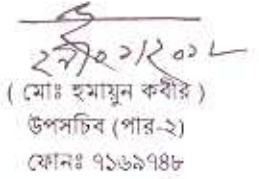 ২৭/০১/২০১৮
( মোঃ হুমায়ুন কবীর )
উপসচিব (পার-২)
ফোনঃ ৭১৬৯৭৪৮